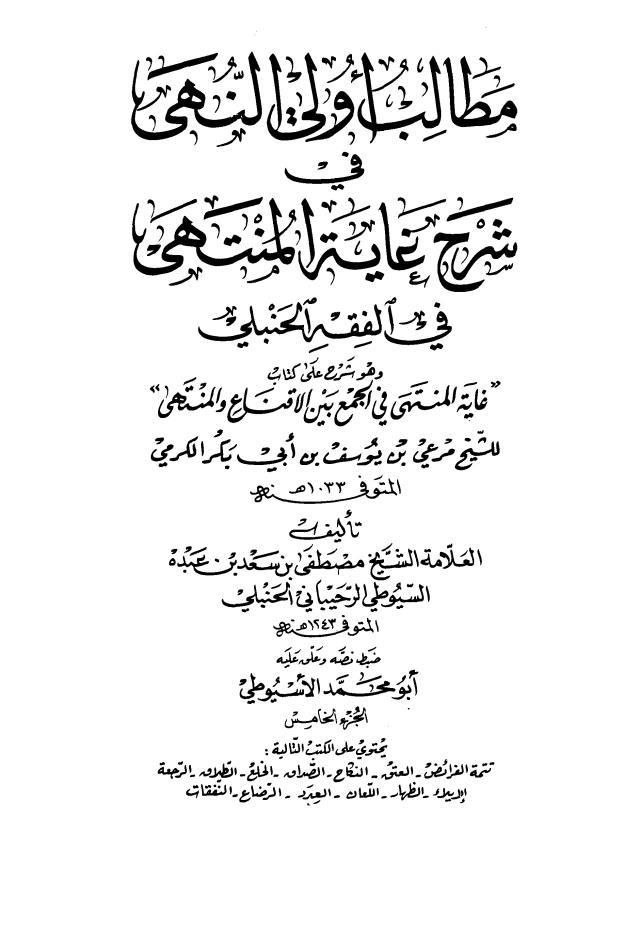 مَطَالِبُ أُولِي النُّهَى
فِي
شَرْحِ غَايَةِ المُنْتَهَى
فِي الفِقْهِ الحَنْبَلِي
وهو شرح على كتاب
"غاية المنتهى في الجمع بين الاقناع والمنتهى"
للشيخ مرعي بن يوسف بن أبي بكر الكرمي
المتوفى سنة ١٠٣٣هـ
تأليف
العلامة الشيخ مصطفى بن سعد بن عبده
السيوطي الرحيباني الحنبلي
المتوفى سنة ١٢٤٣هـ
ضبط نصه وعلق عليه
أبو محمد الأسيوطي
الجزء الخامس
يحتوي على الكتب التالية:
تتمة الفرائض - العتق - النكاح - الصداق - الخلع - الطلاق - الرجعة
الإيلاء - الظهار - اللعان - العدد - الرضاع - النفقات